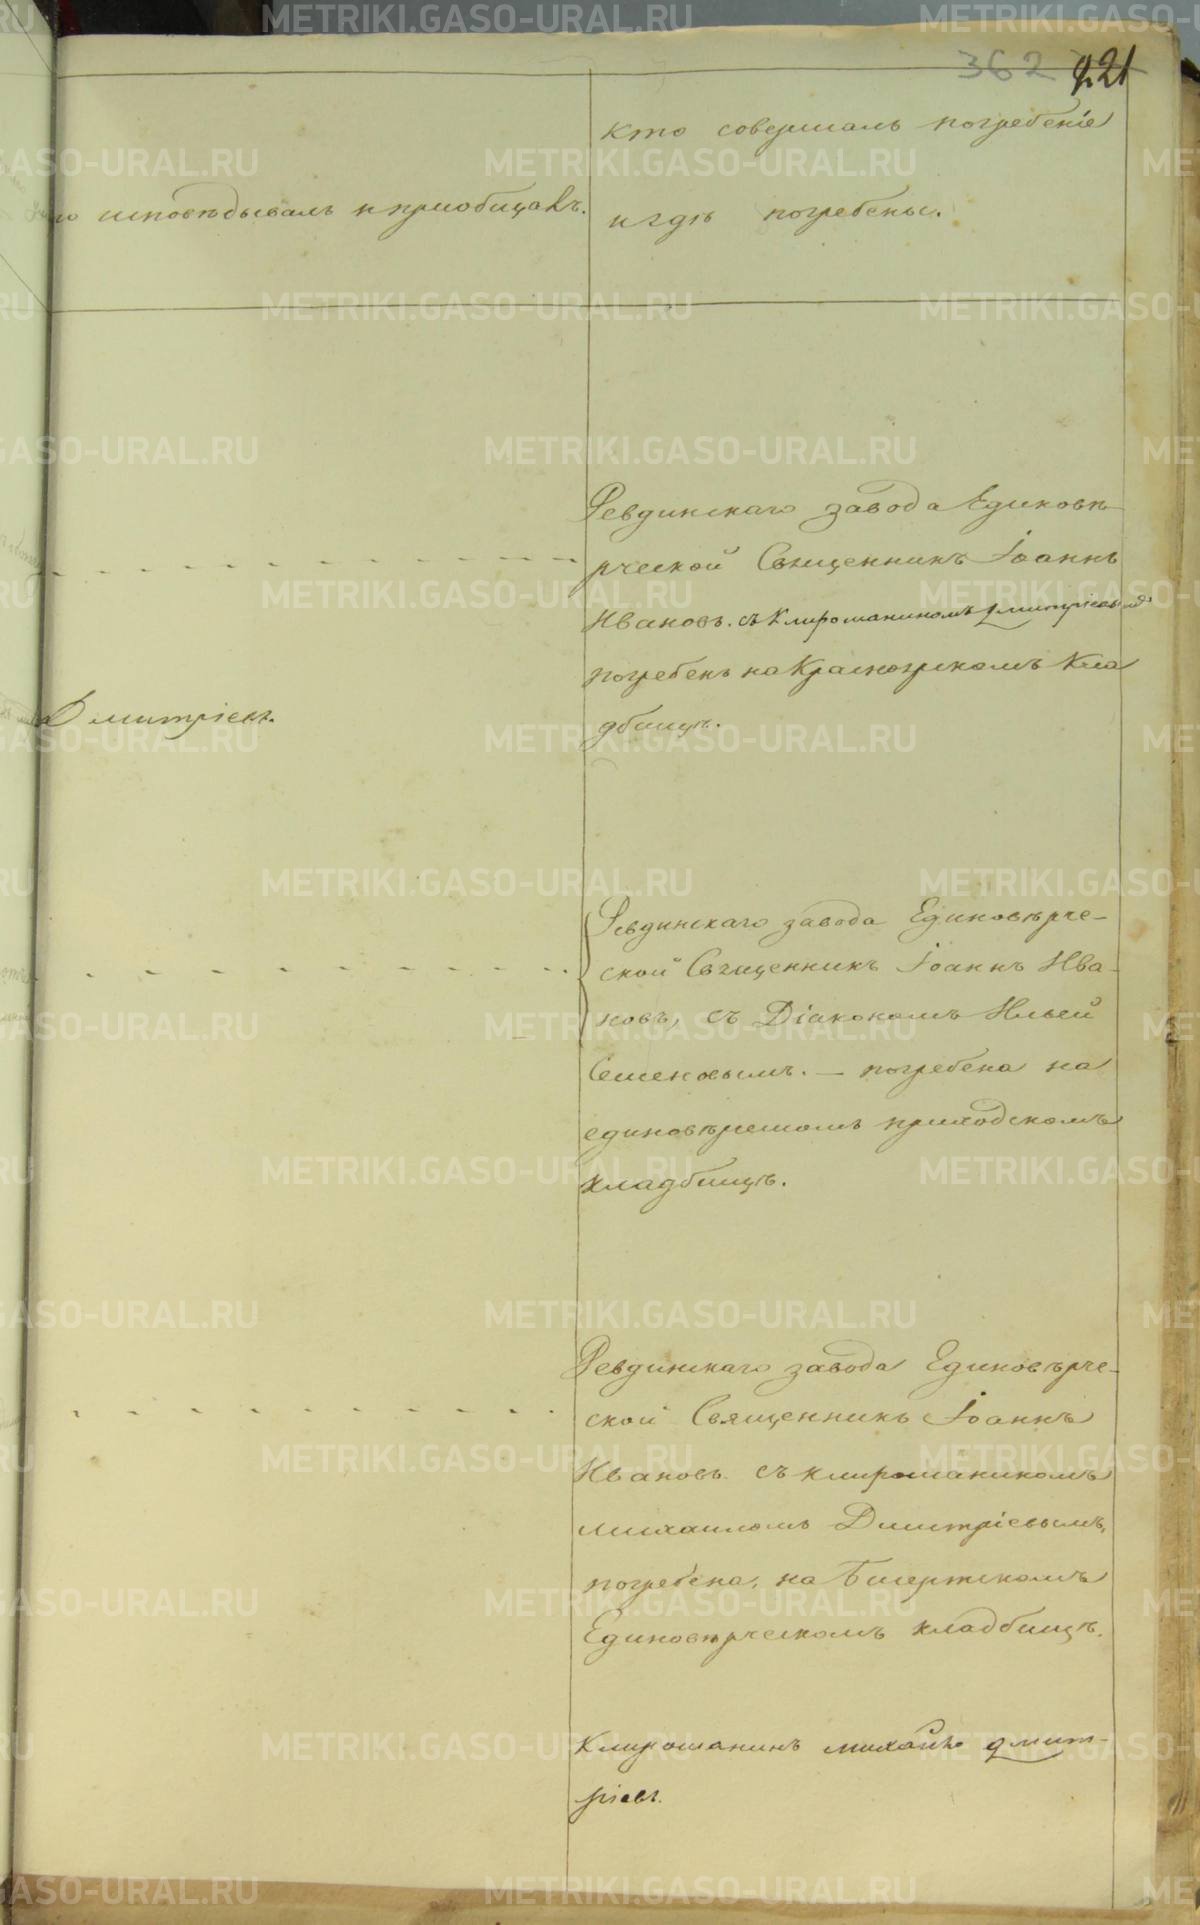 362 921
кто совершалъ погребеніе
исповѣдывалъ и приобщалъ.
и гдѣ погребены.
Ревдинскаго завода Единовѣ-
рческой Священникъ Іоаннъ
Ивановъ. съ Клирошаниномъ Дмитріевымъ
погребенъ на Красноярскомъ Кла
Дмитріевъ.
дбищѣ.
Ревдинскаго завода Единовѣрче-
ской Священникъ Іоаннъ Ива-
новъ, съ Діакономъ Ильей
Семеновымъ. — погребена на
единовѣрческомъ приходскомъ
кладбищѣ.
Ревдинскаго завода Единовѣрче-
ской Священникъ Іоаннъ
Ивановъ съ клирошаниномъ
Михаиломъ Дмитріевымъ,
погребена, на Бисертскомъ
Единовѣрческомъ кладбищѣ.
Клирошанинъ Михайло Дмит-
ріевъ.
METRIKI.GASO-URAL.RU